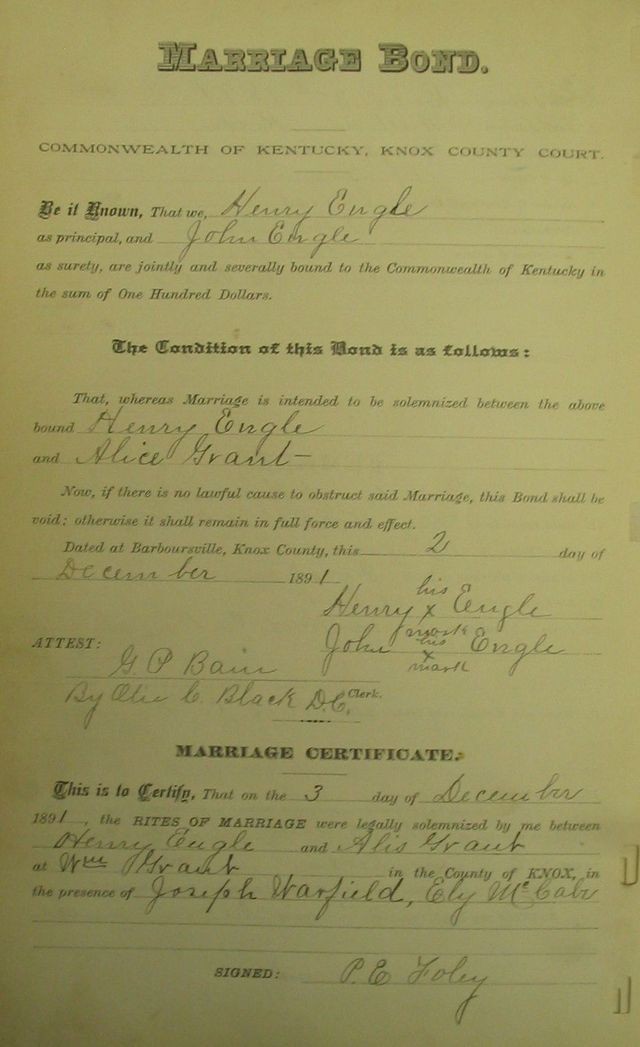 MARRIAGE BOND.
COMMONWEALTH OF KENTUCKY, KNOX COUNTY COURT.
Be it Known, That we, Henry Engle
as principal, and John Engle
as surety, are jointly and severally bound to the Commonwealth of Kentucky in
the sum of One Hundred Dollars.
The Condition of this Bond is as follows:
That, whereas Marriage is intended to be solemnized between the above
bound Henry Engle
and Alice Grant
Now, if there is no lawful cause to obstruct said Marriage, this Bond shall be
void; otherwise it shall remain in full force and effect.
Dated at Barboursville, Knox County, this 2 day of
December 1891
his
Henry x Engle
mark
his
John x Engle
mark
ATTEST:
G. P. Bain
By C. Black D.C. Clerk.
MARRIAGE CERTIFICATE.
This is to Certify, That on the 3 day of December
1891, the RITES OF MARRIAGE were legally solemnized by me between
Henry Engle and Alis Grant
at Wm Grant in the County of KNOX, in
the presence of Joseph Warfield, Ely McCabe
SIGNED: P. E. Foley